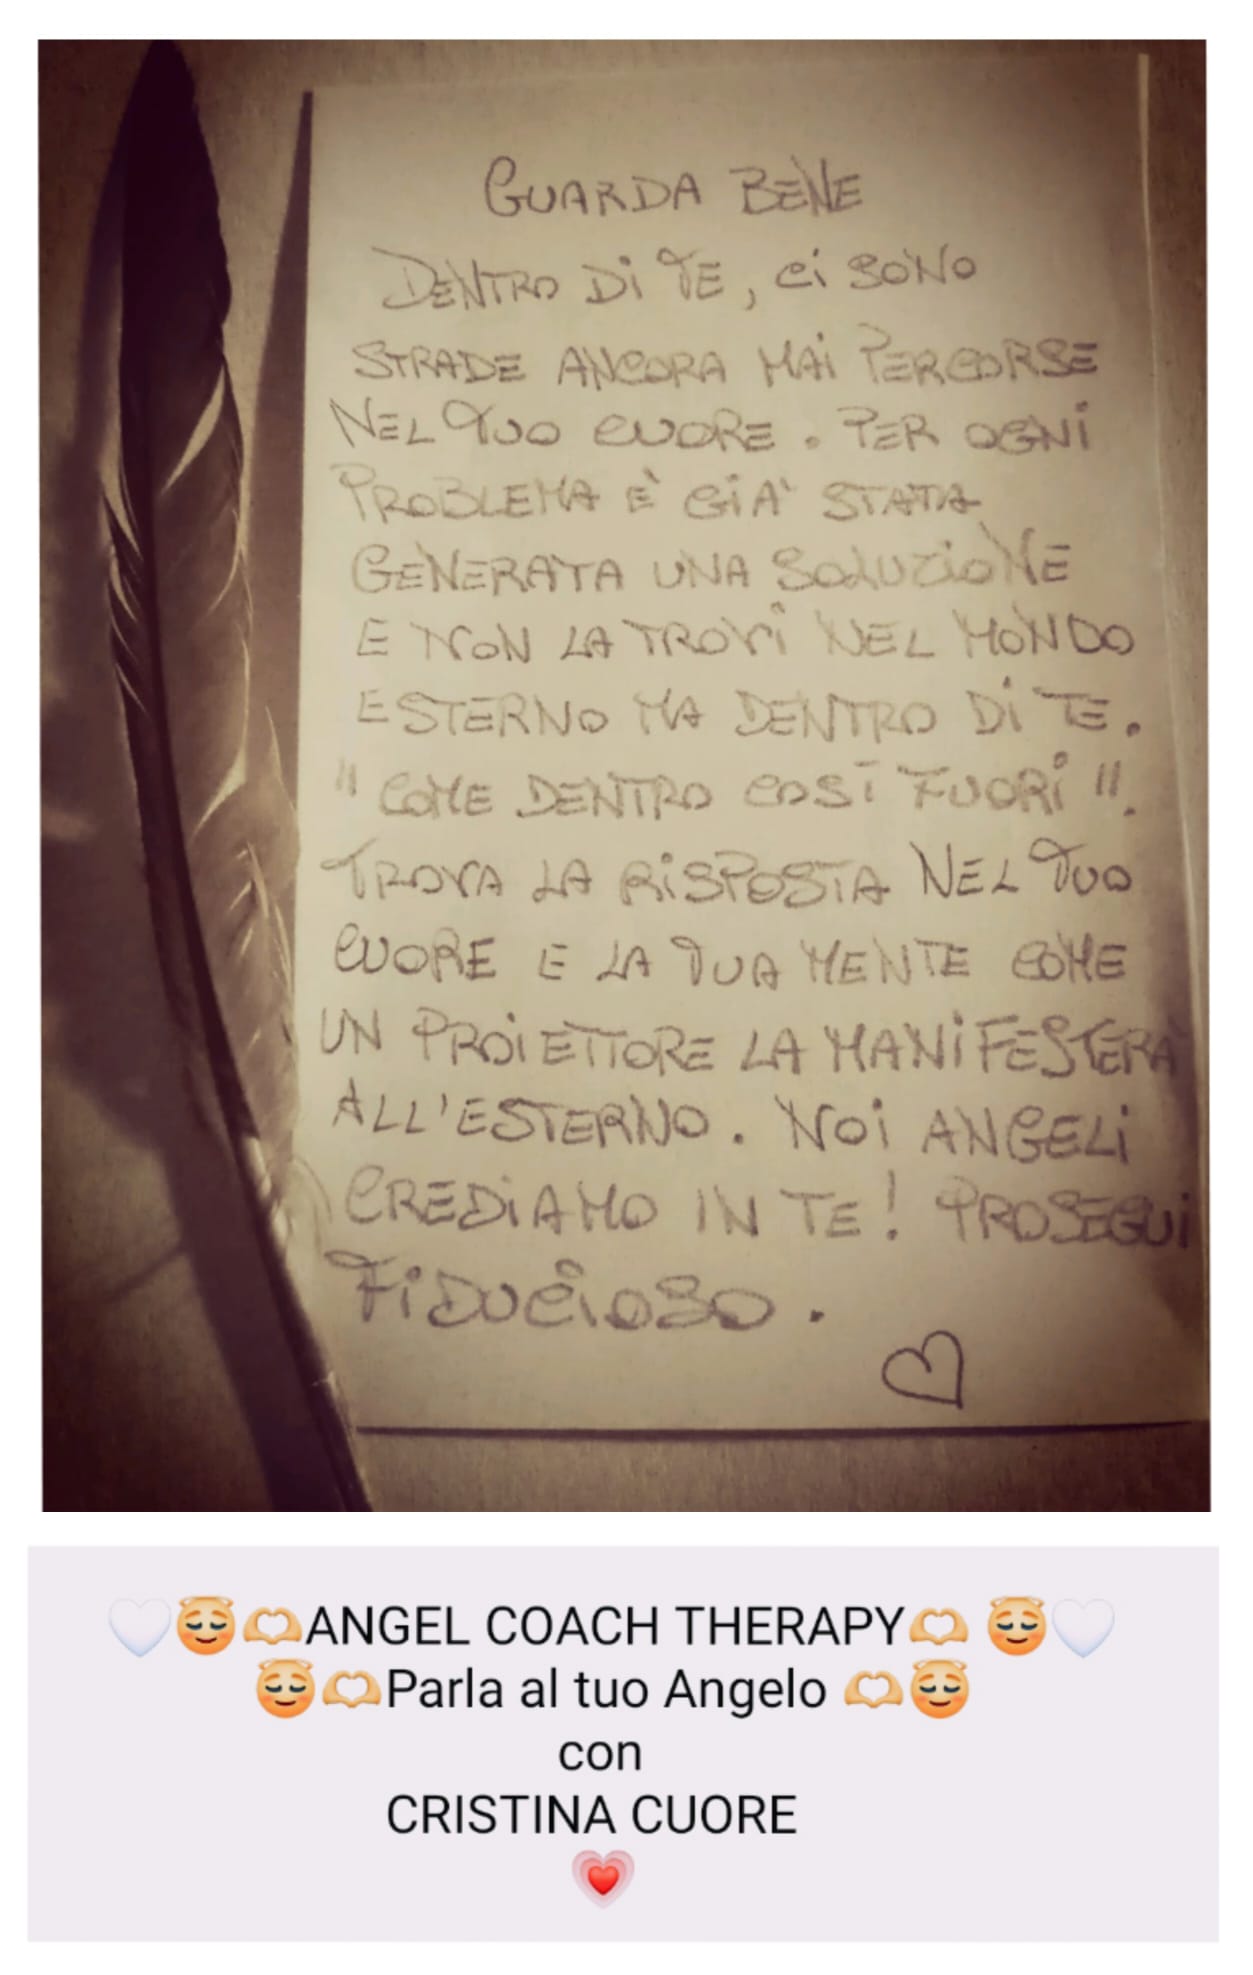 GUARDA BENE
DENTRO DI TE, CI SONO
STRADE ANCORA MAI PERCORSE
NEL TUO CUORE. PER OGNI
PROBLEMA È GIA' STATA
GENERATA UNA SOLUZIONE
E NON LA TROVI NEL MONDO
ESTERNO MA DENTRO DI TE.
"COME DENTRO COSÌ FUORI".
TROVA LA RISPOSTA NEL TUO
CUORE E LA TUA MENTE COME
UN PROIETTORE LA MANIFESTERÀ
ALL'ESTERNO. NOI ANGELI
CREDIAMO IN TE! PROSEGUI
FIDUCIOSO.
🤍😇🫶ANGEL COACH THERAPY🫶 😇🤍
😇🫶Parla al tuo Angelo 🫶😇
con
CRISTINA CUORE
💗